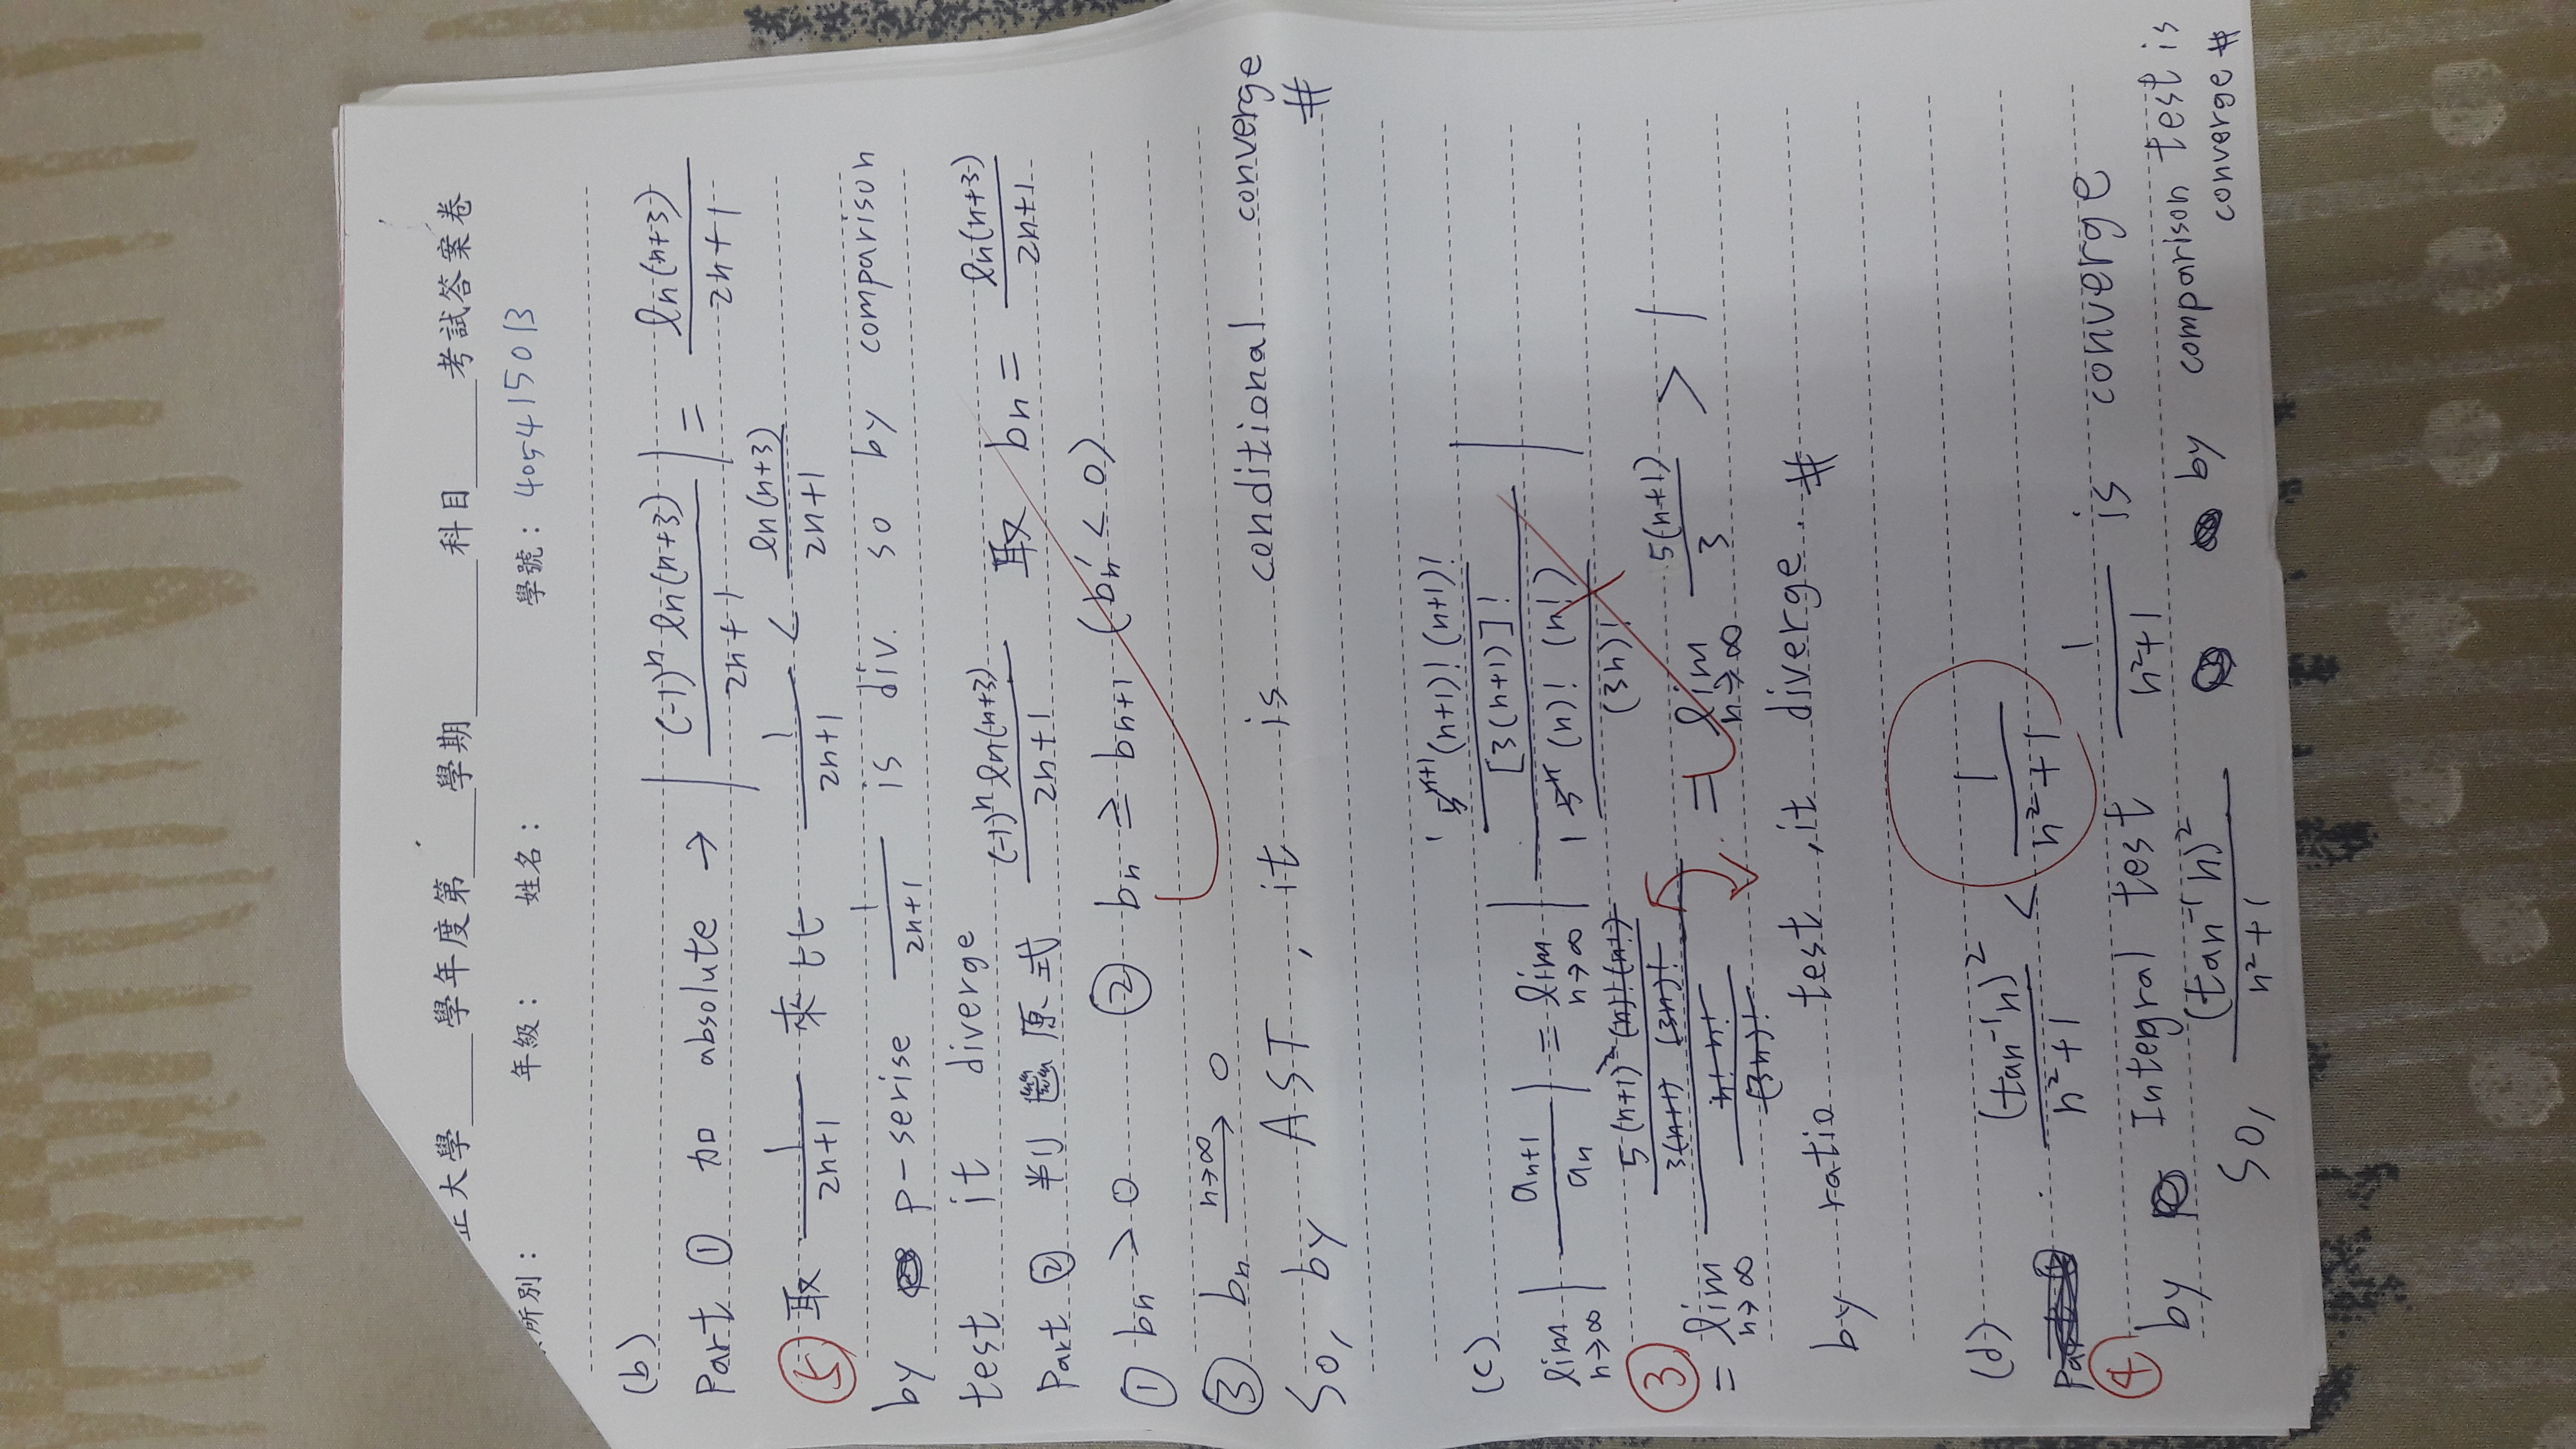 正大學____學年度第____學期______科目____考試答案卷
所別： 年級： 姓名： 學號： 405415013
(b)
Part ① 加 absolute → | (-1)^n ln(n+3) / 2n+1 | = ln(n+3) / 2n+1
⑤ 取 1 / 2n+1 來比 1 / 2n+1 < ln(n+3) / 2n+1
by p-serise 1 / 2n+1 is div. so by comparison
test it diverge
Part ② 判 原式 (-1)^n ln(n+3) / 2n+1 取 bn = ln(n+3) / 2n+1
① bn > 0 ② bn ≥ bn+1 (bn' < 0)
③ bn —n→∞→ 0
So, by AST, it is conditional converge #
(c)
lim n→∞ | an+1 / an | = lim n→∞ | 1 5^n+1 (n+1)! (n+1)! / [3(n+1)]! / 1 5^n (n)! (n!) / (3n)! |
③
= lim n→∞ 5(n+1)^2 (n)! (n!) / 3(n+1) (3n)! / n! n! / (3n)! = lim n→∞ 5(n+1) / 3 > 1
by ratio test, it diverge. #
(d)
(tan^-1 n)^2 / n^2+1 < 1 / n^2+1
④ by Integral test 1 / n^2+1 is converge
So, (tan^-1 n)^2 / n^2+1 by comparison test is
converge #